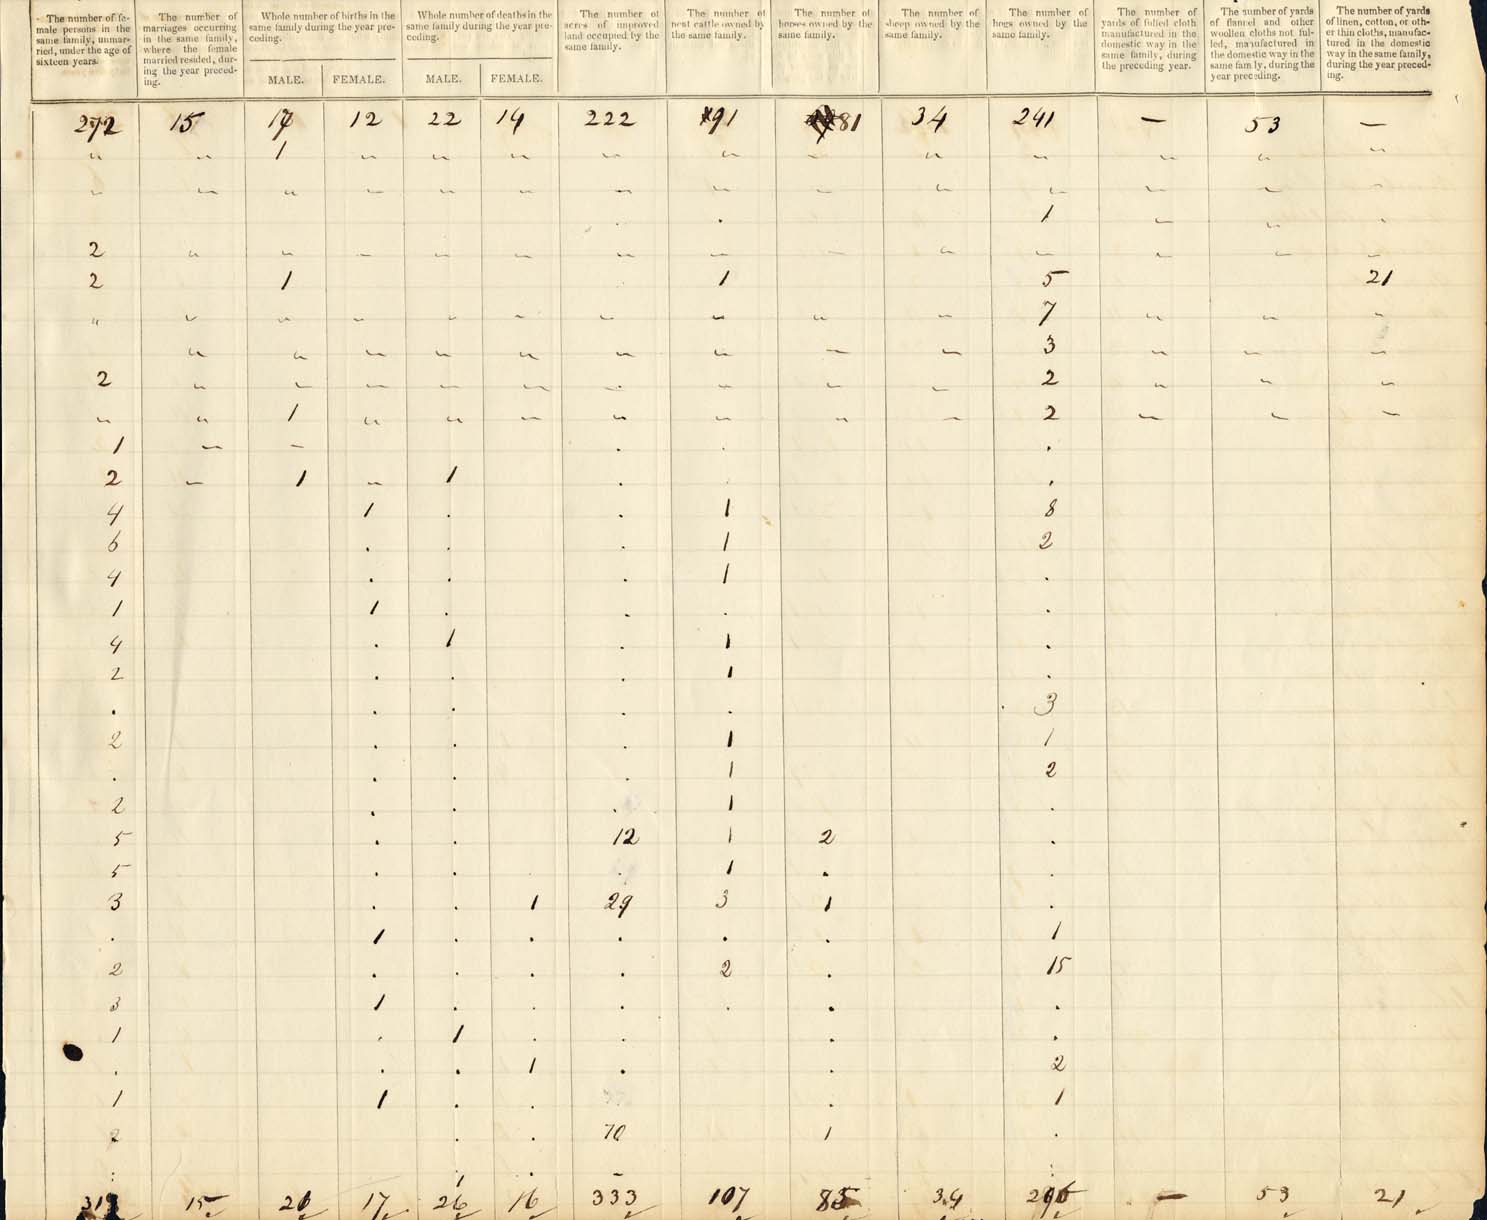 The number of fe-male persons in the same family, unmar-ried, under the age of sixteen years.
The number of marriages occurring in the same family, where the female married resided, dur-ing the year preced-ing.
Whole number of births in the same family during the year pre-ceding.
MALE. FEMALE.
Whole number of deaths in the same family during the year pre-ceding.
MALE. FEMALE.
The number of acres of improved land occupied by the same family.
The number of neat cattle owned by the same family.
The number of horses owned by the same family.
The number of sheep owned by the same family.
The number of hogs owned by the same family.
The number of yards of fulled cloth manufactured in the domestic way in the same family, during the preceding year.
The number of yards of flannel and other woollen cloths not ful-led, manufactured in the domestic way in the same family, during the year preceding.
The number of yards of linen, cotton, or oth-er thin cloths, manufac-tured in the domestic way in the same family, during the year preced-ing.
272 15 17 12 22 14 222 91 81 34 241 — 53 —
" " 1 " " " " " " " " " " "
" " " " " " " " " " " " " "
. . 1 " " .
2 " " " " " " " " " " " " "
2 1 1 5 21
" " " " " " " " " " 7 " " "
" " " " " " " " " 3 " " "
2 " " " " " . " " " 2 " " "
" " 1 " " " " " " " 2 " " "
1 " " . . .
2 " 1 " 1 . .
4 1 . . 1 8
6 . . . 1 2
4 . . . 1 .
1 1 . . . .
4 . 1 . 1 .
2 . . . 1 .
. . . . . . 3
2 . . . 1 1
. . . . 1 2
2 . . . 1 .
5 . . 12 1 2 .
5 . . . 1 . .
3 . . 1 29 3 1 .
. 1 . . . . . 1
2 . . . 2 . 15
3 1 . . . . .
1 . 1 . . . .
. . . 1 . . 2
1 1 . . . 1
2 . . 70 1 .
31 15 20 17 26 16 333 107 85 34 296 — 53 21